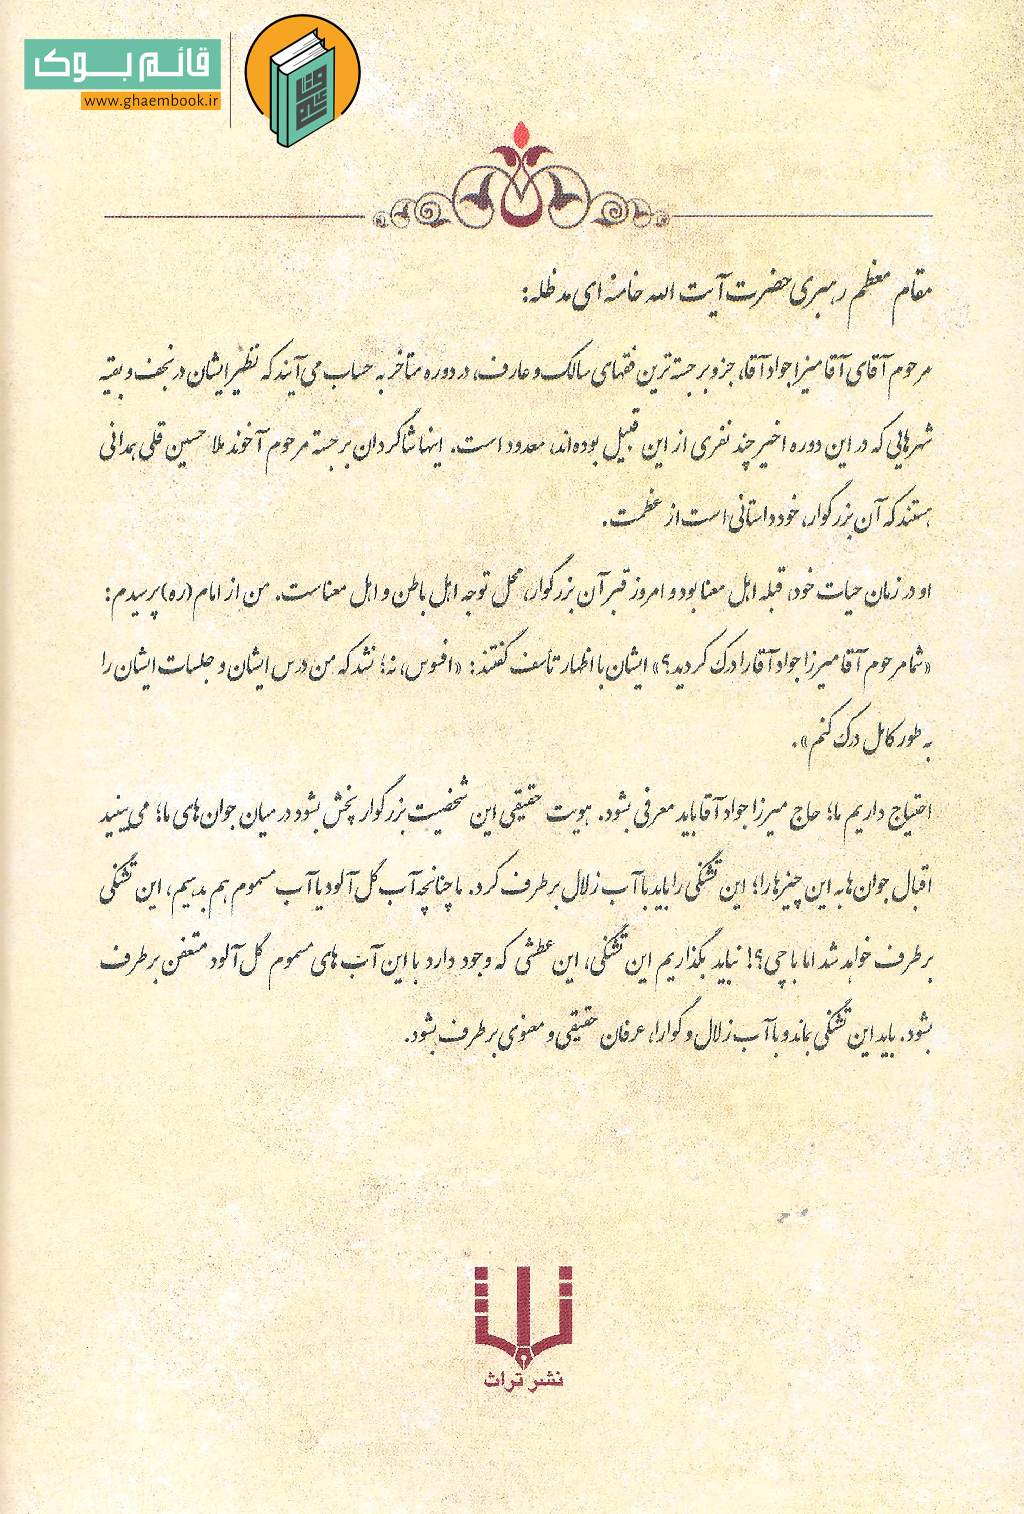 قائم بوک
www.ghaembook.ir
مقام معظم رهبری حضرت آیت الله خامنه ای مدظله:
مرحوم آقای آقا میرزا جواد آقا، جزو برجسته‌ترین فقهای سالک و عارف، در دوره متأخر به حساب می‌آیند که نظیر ایشان در نجف و بقیه
شهرهایی که در این دوره اخیر چند نفری از این قبیل بوده‌اند، معدود است. اینها شاگردان برجسته مرحوم آخوند ملا حسین قلی همدانی
هستند که آن بزرگوار، خود داستانی است از عظمت.
او در زمان حیات خود، قبله اهل معنا بود و امروز قبر آن بزرگوار، محل توجه اهل باطن و اهل معناست. من از امام (ره) پرسیدم:
«شما مرحوم آقا میرزا جواد آقا را درک کردید؟» ایشان با اظهار تأسف گفتند: «افسوس، نه؛ نشد که من درس ایشان و جلسات ایشان را
به طور کامل درک کنم».
احتیاج داریم ما؛ حاج میرزا جواد آقا باید معرفی بشود. هویت حقیقی این شخصیت بزرگوار پخش بشود در میان جوان‌های ما؛ می‌بینید
اقبال جوان‌ها به این چیزها را؛ این تشنگی را باید با آب زلال برطرف کرد. ما چنانچه آب گل آلود یا آب مسموم هم بدهیم، این تشنگی
برطرف خواهد شد اما با چی؟! نباید بگذاریم این تشنگی، این عطشی که وجود دارد با این آب های مسموم گل آلود متعفن برطرف
بشود. باید این تشنگی بماند و با آب زلال و گوارا، عرفان حقیقی و معنوی برطرف بشود.
نشر تراث